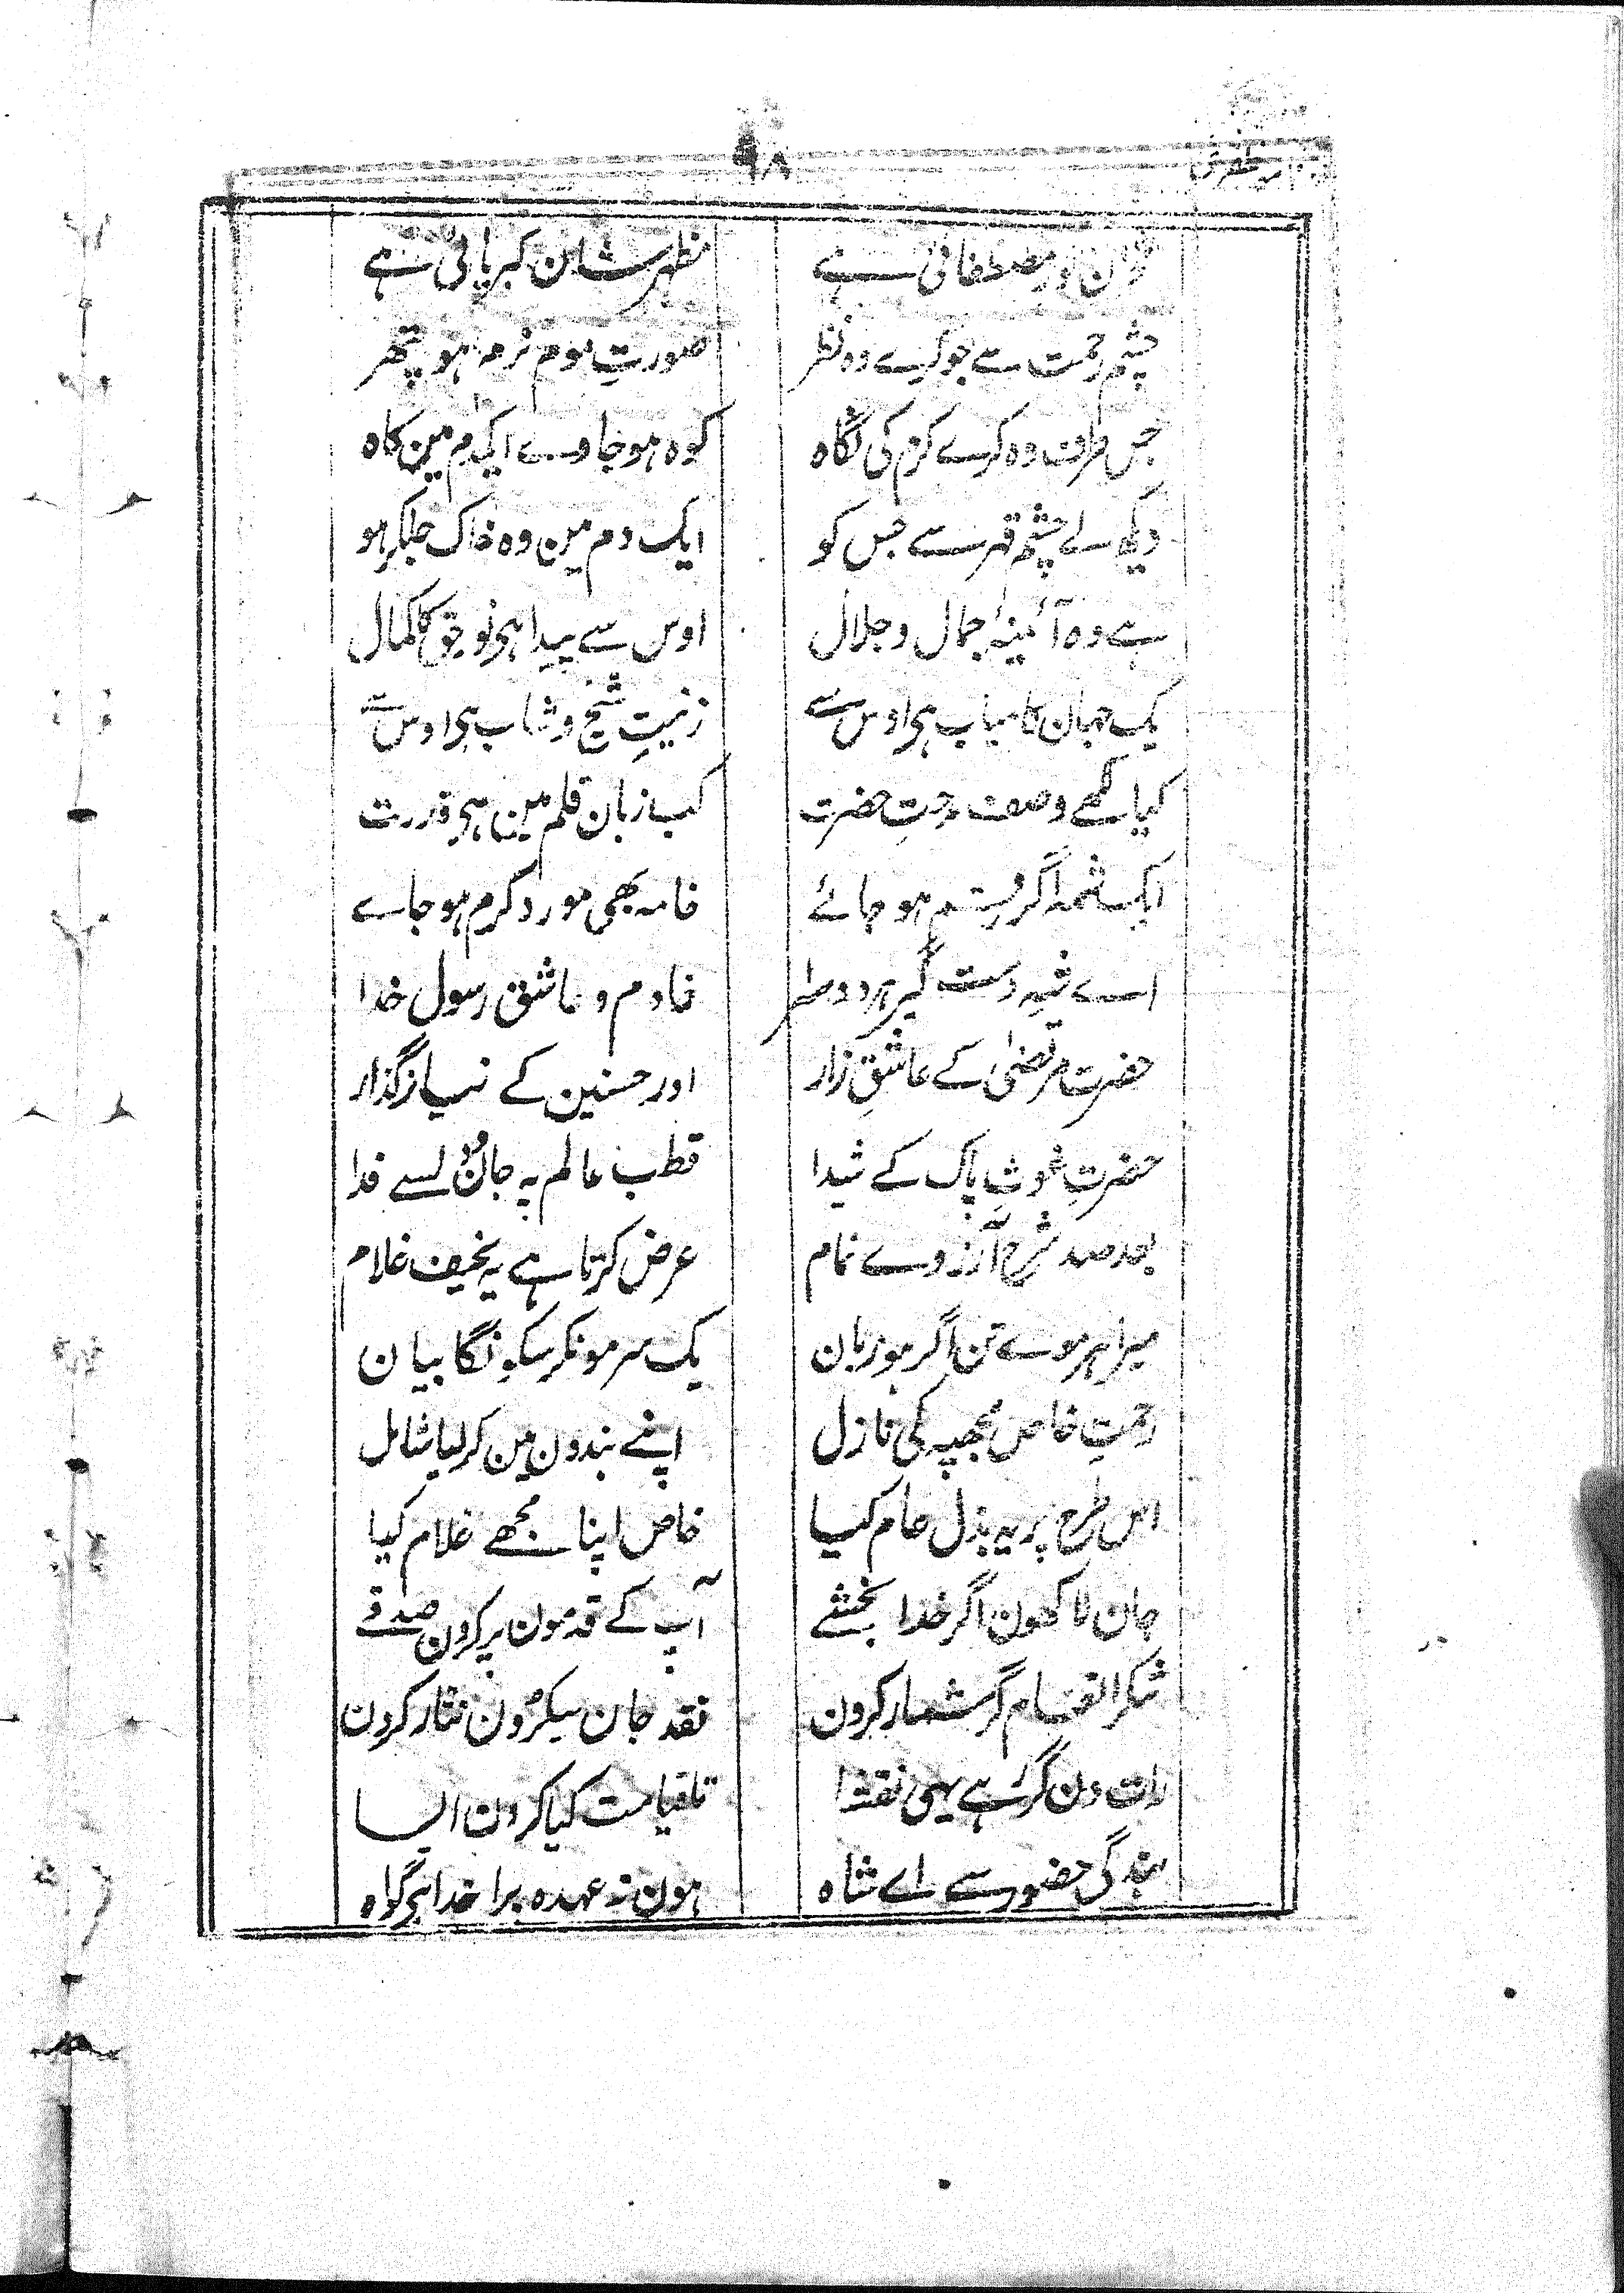 ۹۸
مصطفائی ہے مظہر شان کبریائی ہے
چشم رحمت سے جو کرے وہ نظر صورتِ موم نرم ہو پتھر
جس طرف وہ کرے کرم کی نگاہ کوہ ہو جاوے ایکدم مین کاہ
دیکھ لے چشم قہر سے جس کو ایک دم مین وہ خاک جلکر ہو
ہے وہ آئینۂ جمال و جلال اوس سے پیدا ہی نو حق کا کمال
یک جہان کامیاب ہی اوس سے زینتِ شیخ و شاب ہی اوس سے
کیا لکھے وصف حضرت کب زبان قلم مین ہی قدرت
ایک شمہ اگر رقم ہو جائے خامہ بھی مورد کرم ہو جاے
اے شہِ دست گیر ہر دو سرا خادم و عاشق رسول خدا
حضرت مرتضیٰ کے عاشقِ زار اور حسنین کے نیاز گذار
حضرتِ غوثِ پاک کے شیدا قطب عالم پہ جان و دل سے فدا
بعد صد شرح آرزوے تمام عرض کرتا ہے یہ نحیف غلام
میرا ہر موے تن اگر ہو زبان یک سر مو نکر سکونگا بیان
رحمتِ خاص مجھپہ کی نازل اپنے بندون مین کر لیا شامل
اس طرح پر یہ بذل عام کیا خاص اپنا مجھے غلام کیا
جان لاکھون اگر خدا بخشے آپ کے قدمون پر کرون صدقے
شکر انعام گر شمار کرون نقد جان سیکڑون نثار کرون
رات دن گر رہے یہی نقشا تاقیامت کیا کرون ایسا
بندگی حضور سے اے شاہ ہون نہ عہدہ برا خدا ہی گواہ